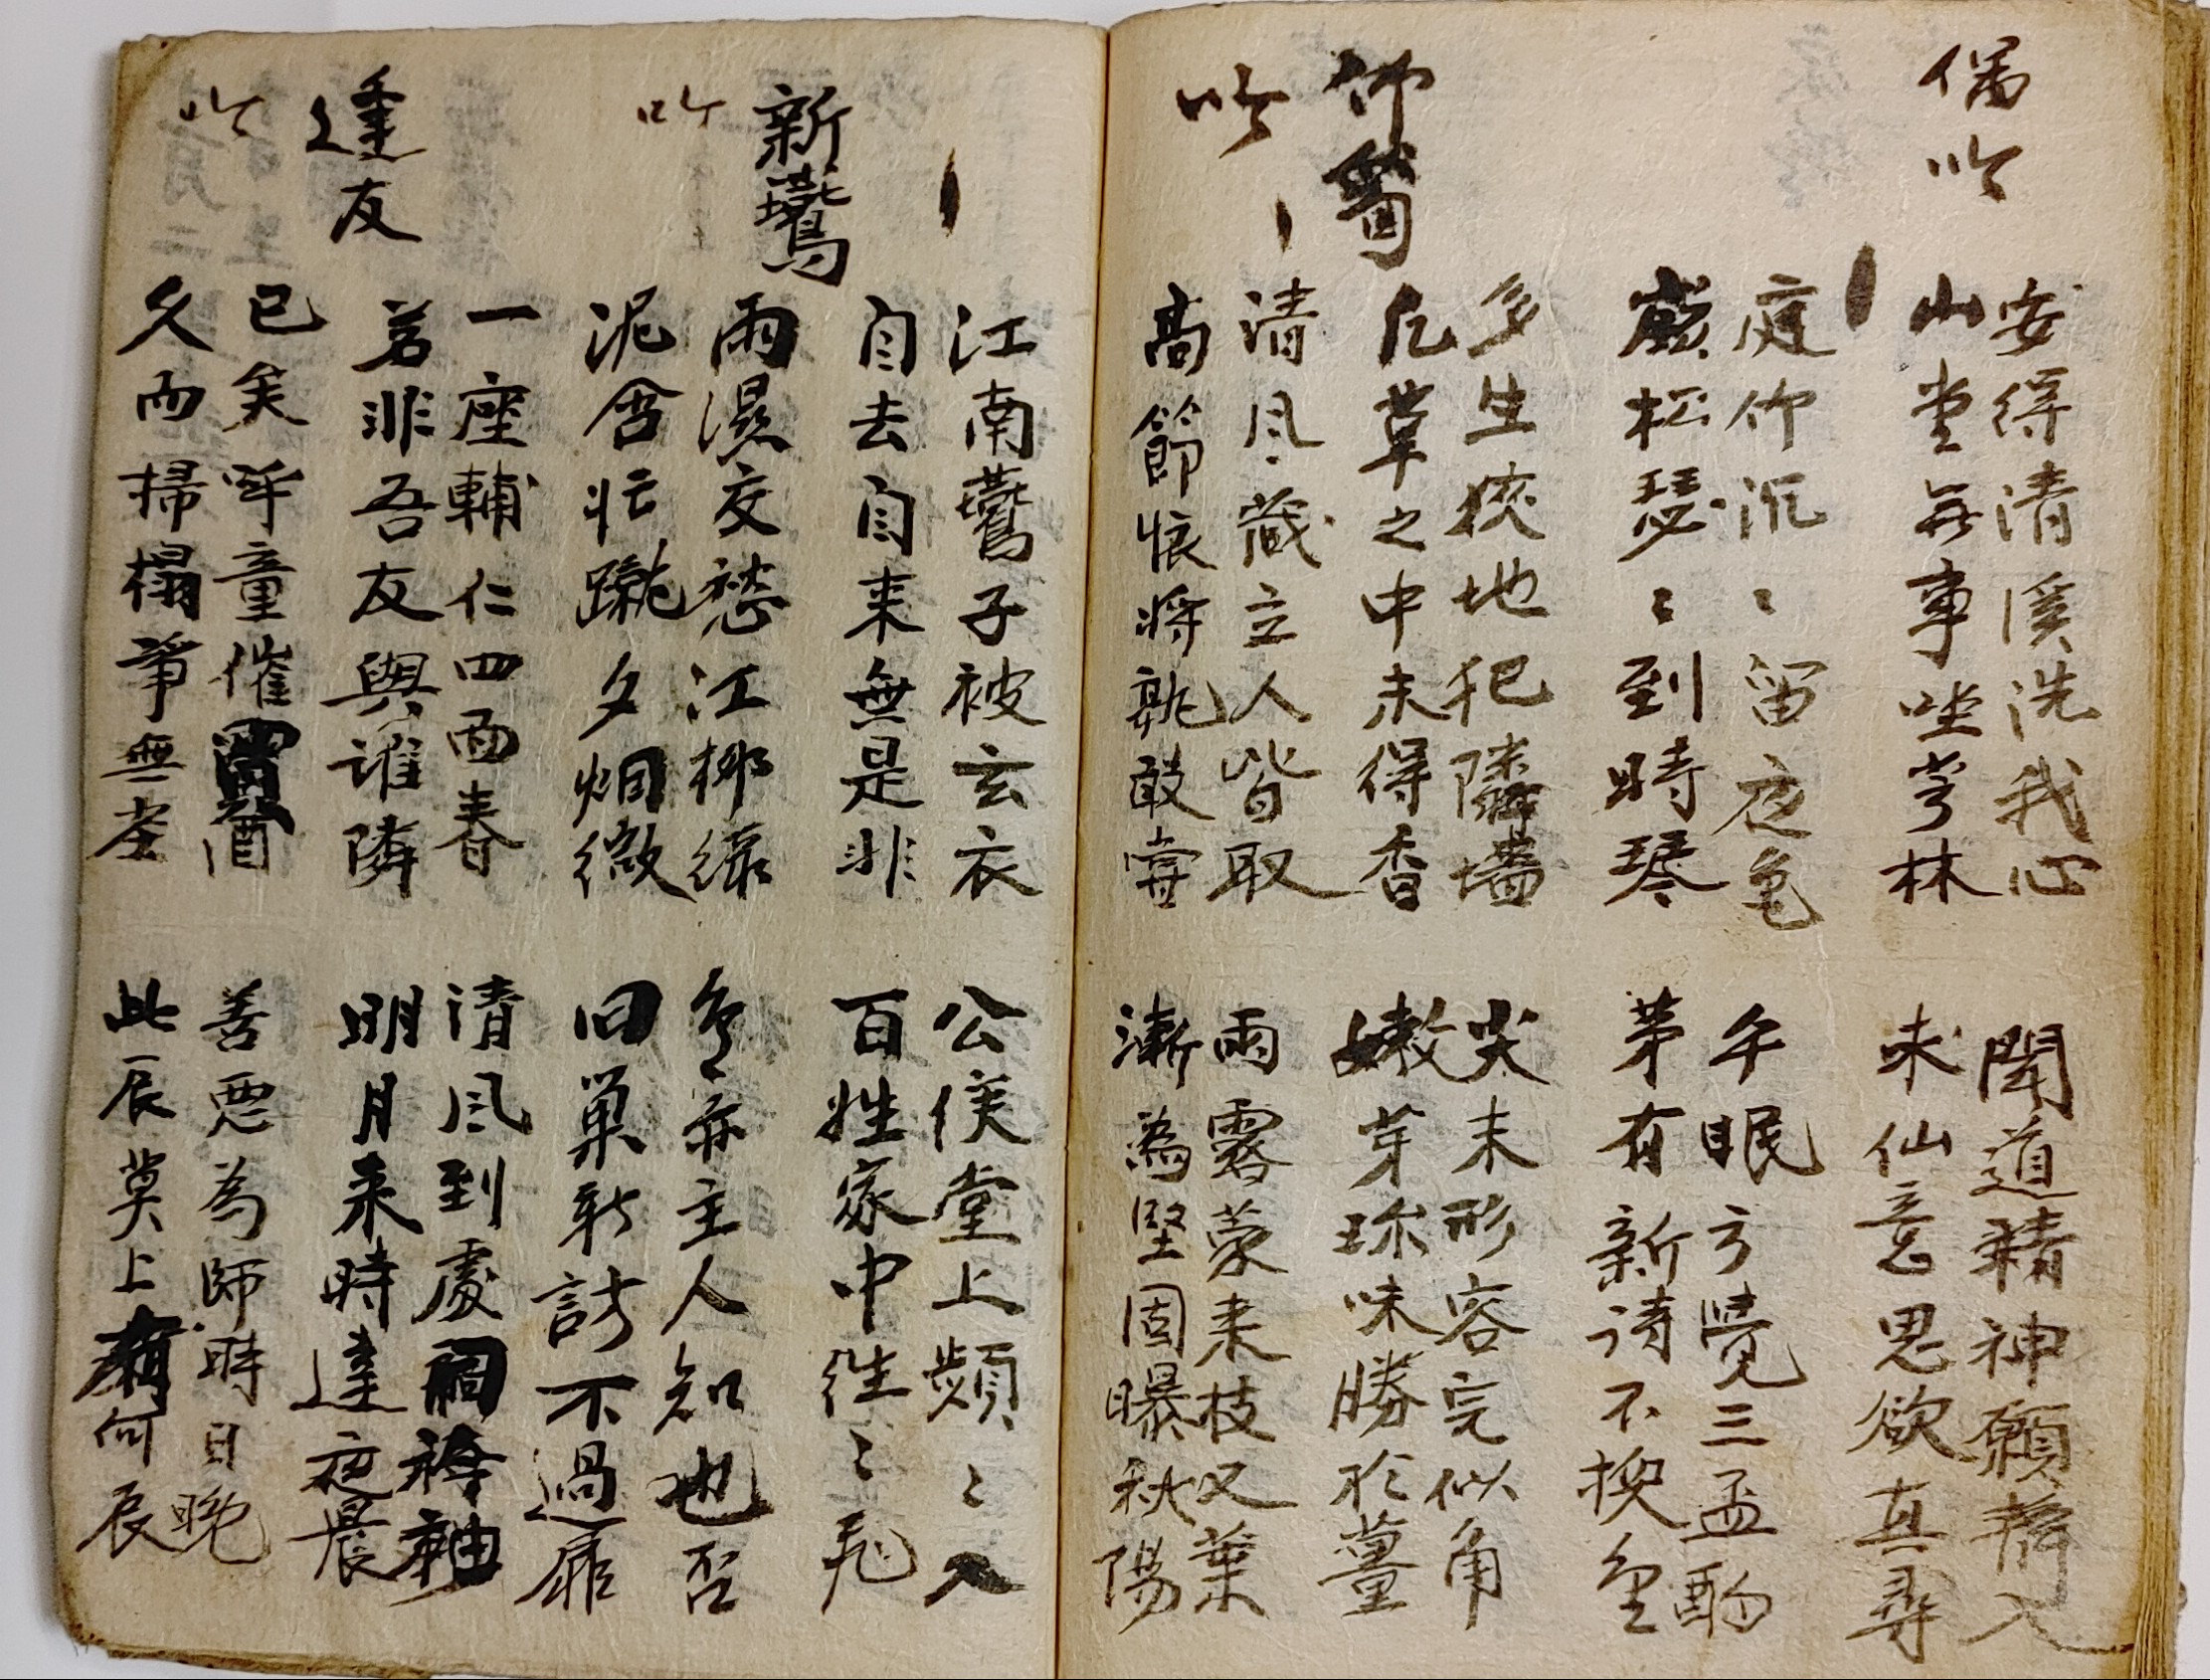 偶吟
安得清溪洗我心
山堂無事坐穹林
聞道精神願
未仙意思欲真尋
庭竹沉〻留夜色
松瑟〻到時琴
午眠方覺三盃酌
茅有新詩不換金
竹筍
吟
多生狹地犯隣墻
凡草之中未得香
尖末形容完似角
嫩芽珎味勝於薑
清風藏立人皆取
高節恨將孰敢甞
雨露蒙來枝又葉
漸為堅固曝秋陽
新鷰
吟
江南鷰子被玄衣
自去自来無是非
公侯堂上頻〻入
百姓家中往〻飛
雨濕交愁江柳綠
泥含忙蹴夕烟微
主人知也否
旧巢新訪不過扉
逢友
吟
一座輔仁四面春
若非吾友與誰隣
清風到處
明月来時達夜晨
已矣呼童催酒
久而掃榻等無塵
善惡為師時日晩
此辰莫上何辰